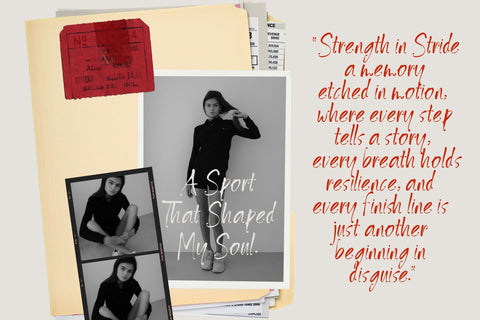 A Sport
That Shaped
My Soul.
"Strength in Stride
a memory
etched in motion,
where every step
tells a story,
every breath holds
resilience, and
every finish line is
just another
beginning in
disguise."